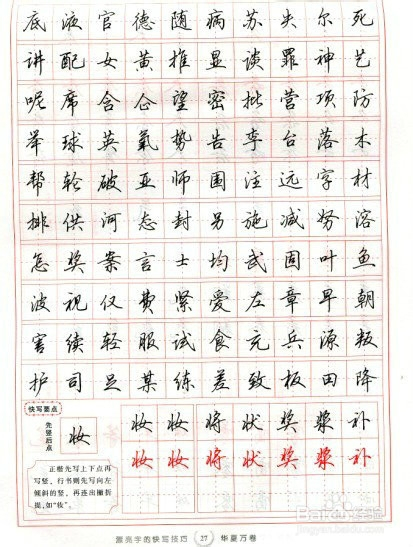 底液官德随病苏失尔死
讲配女黄推显谈罪神艺
呢席含企望密批营项防
举球英氧势告李台落木
帮轮破亚师围注远字材
排供河态封另施减努溶
怎奖案言士均武固叶鱼
波视仅费紧爱左章早朝
害续轻服试食充兵源叛
护司足某练差致板田降
快写要点
先竖后点
妆
正楷先写上下点再写竖，行书则先写向左倾斜的竖，再连出撇折提，如“妆”。
妆妆将状奖浆补
妆妆将状奖浆补
漂亮字的快写技巧 27 华夏万卷
Baidu经验